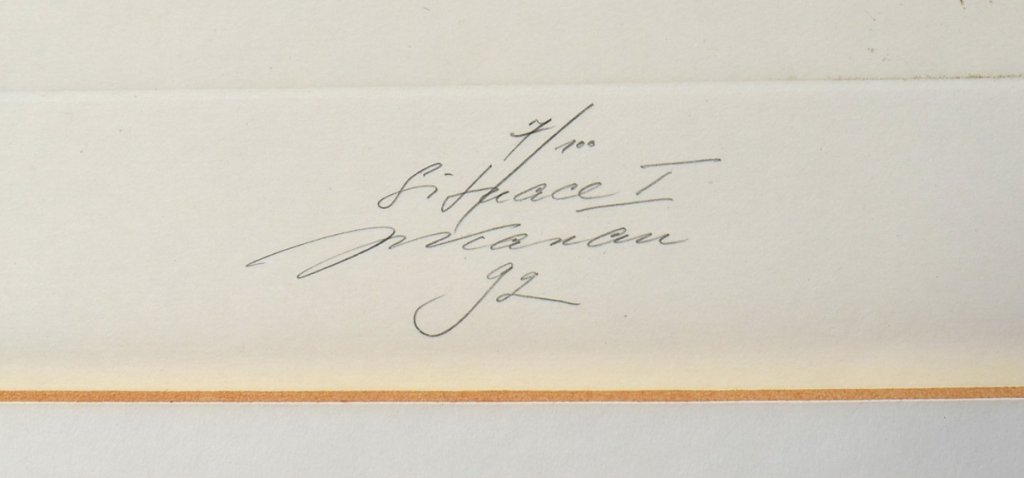 7/100
Situace I
92